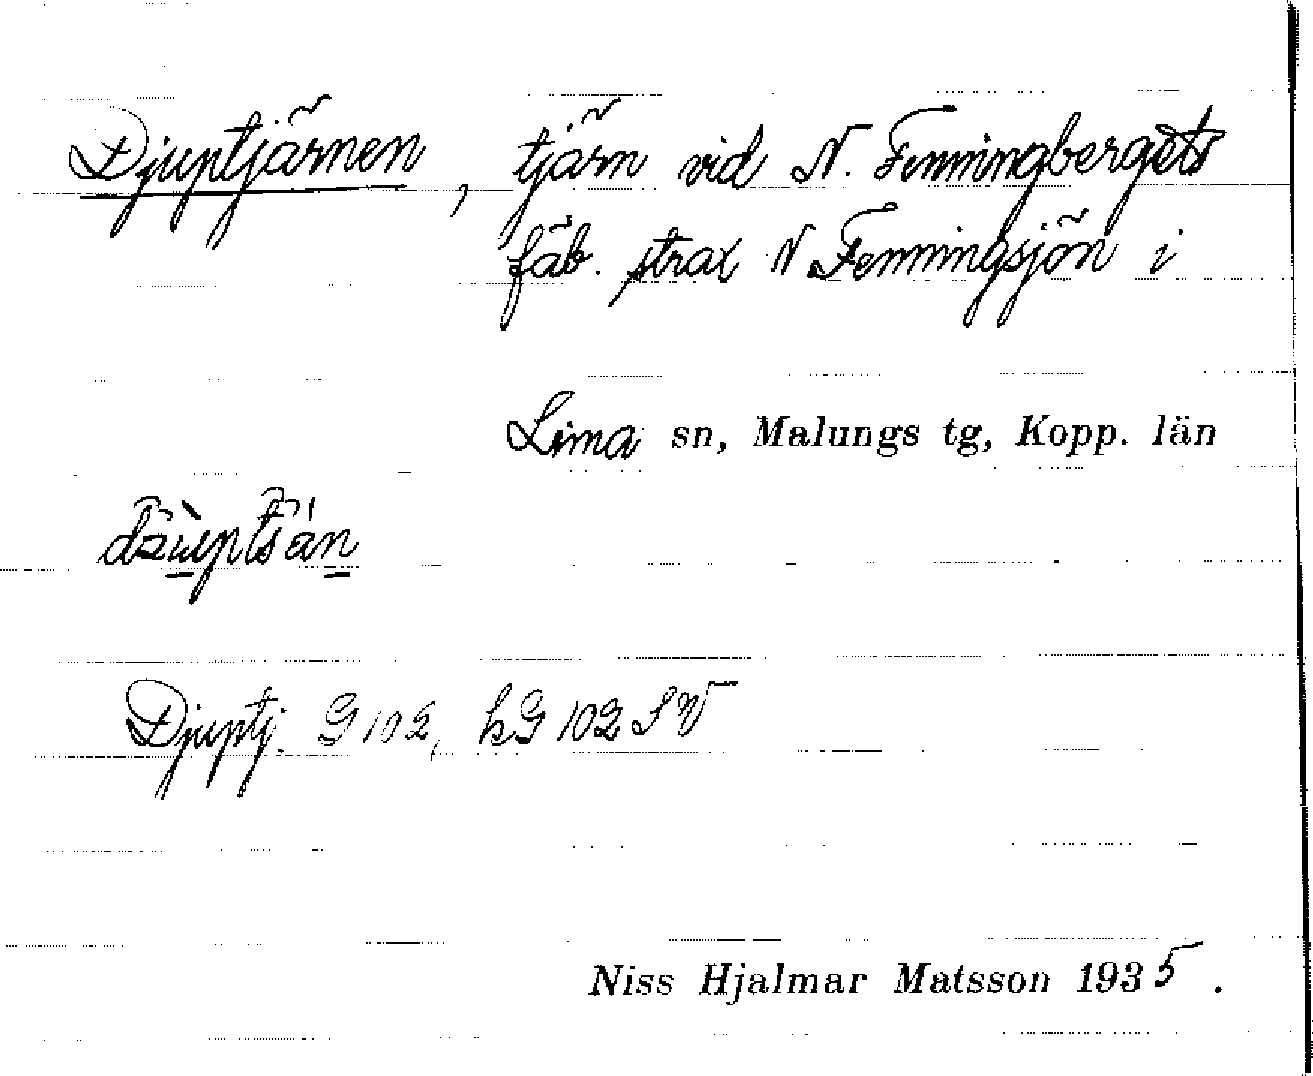 Djuptjärnen, tjärn vid N. Fenningbergets
fäb. strax N Fenningsjön i
Lima sn, Malungs tg, Kopp. län
Djuptj. G 102, kG 102 SV
Niss Hjalmar Matsson 1935.